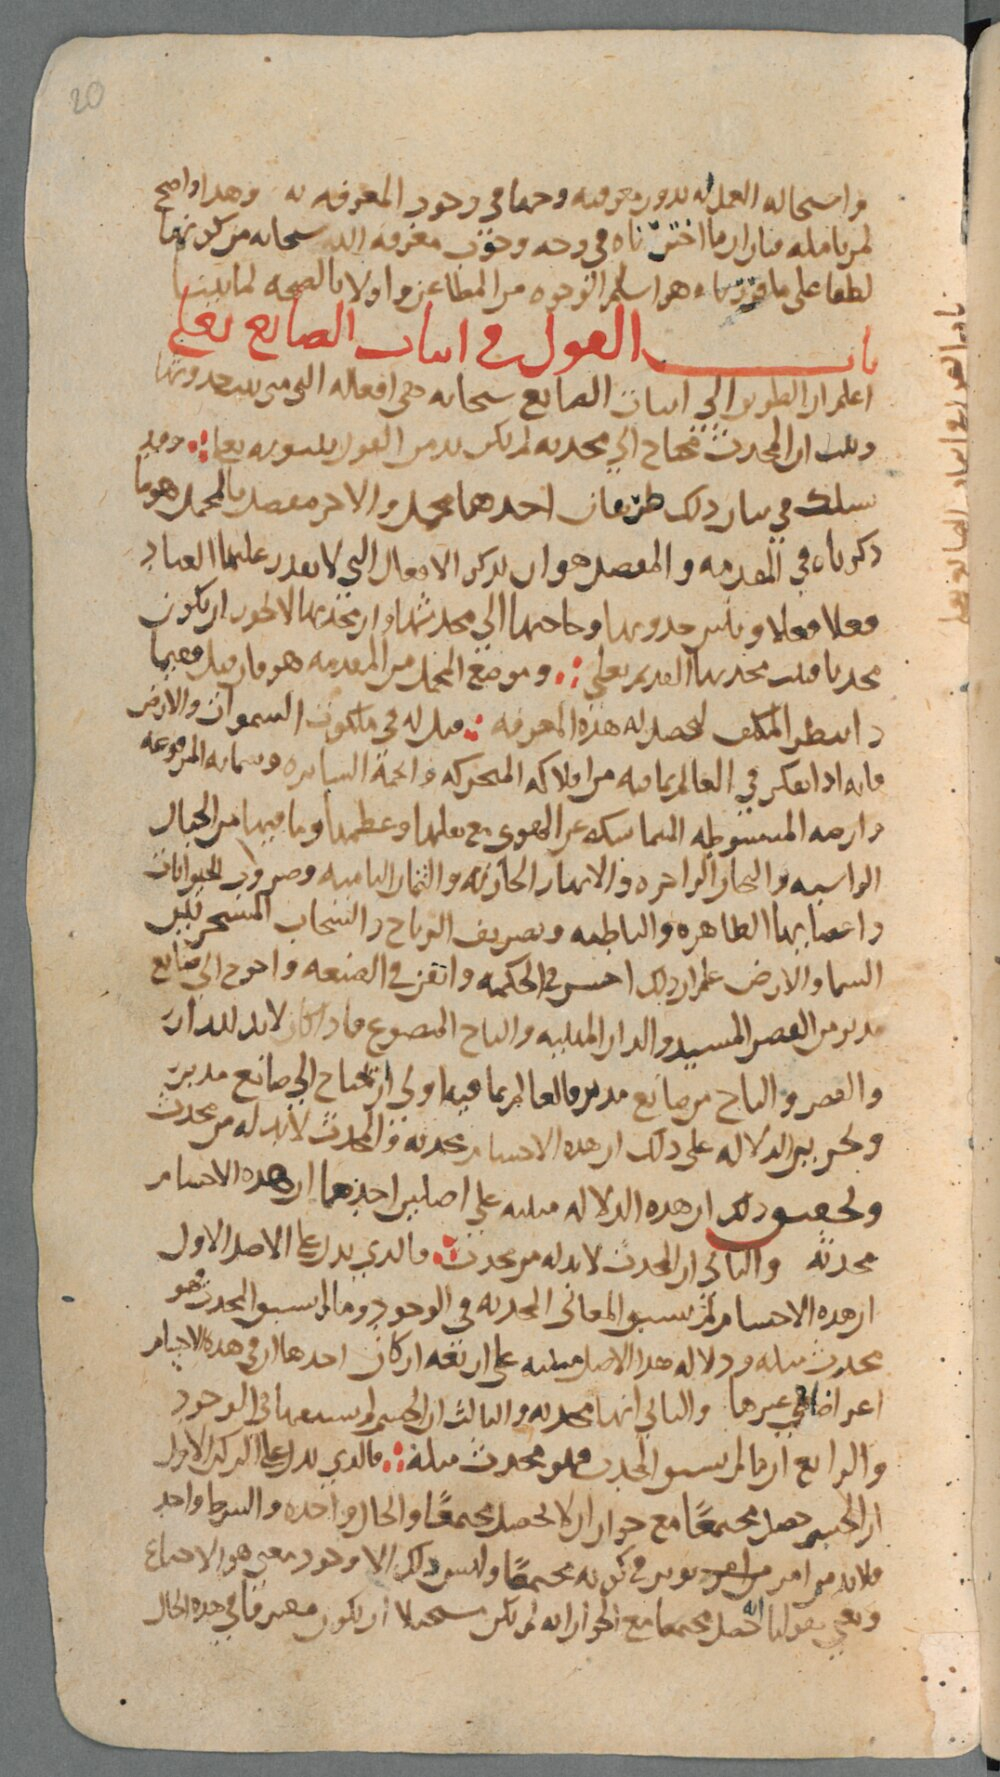 20
واستحاله العمل له بدون معرفته وحصا في وجوب المعرفه به وهذا واضح
لمن تامله فبان ان ما اخترناه في وجه وجوب معرفه الله سبحانه من كونها
لطفا على ما قررناه هو اسلم الوجوه من المطاعن واولا بالصحه لما بينا
باب القول في اثبات الصانع تعلى
اعلم ان الطريق الى اثبات الصانع سبحانه هي افعاله التي متى ثبت حدوثها
وثبت ان المحدث محتاج الى محدث لم يكن بد من القول بثبوته تعلى وقد
نسلك في بيان ذلك طريقان احدهما مجمل والاخر مفصل فالمجمل هو ما
ذكرناه في المقدمه والمفصل هو ان نذكر الافعال التي لا يقدر عليها العباد
فعلا فعلا ونبين حدوثها وحاجتها الى محدثها وان محدثها لا يجوز ان يكون
محدثا فثبت محدثها القديم تعلى وموضع المجمل من المقدمه هو فان قيل ففيما
ذا ينظر المكلف لتحصل له هذه المعرفه قيل له في ملكوت السموات والارض
فانه اذا تفكر في العالم بما فيه من افلاكه المتحركه وانجمه السايره وسمائه المرفوعه
وارضه المبسوطه المتماسكه عن الهوي مع ثقلها وعظمها وما فيها من الجبال
الراسيه والبحار الزاخره والانهار الجاريه والثمار الناميه وضروب الحيوانات
واعضايها الظاهره والباطنه وتصريف الرياح والسحاب المسخر بين
السما والارض علم ان ذلك احسن في الحكمه واتقن في الصنعه واحوج الى صانع
مدبر من القصر المشيد والدار المبنيه والباج المصنوع فاذا كان لا بد للدار
والقصر والباج من صانع مدبر فالعالم بما فيه اولى ان يحتاج الى صانع مدبر
ونحرير الدلاله على ذلك ان هذه الاجسام محدثه والمحدث لا بد له من محدث
وتحقيق ذلك ان هذه الدلاله مبنيه على اصلين احدهما ان هذه الاجسام
محدثه والثاني ان المحدث لا بد له من محدث فالذي يدل على الاصل الاول
ان هذه الاجسام لم تسبق المعاني المحدثه في الوجود وما لم يسبق المحدث فهو
محدث مثله ودلاله هذا الاصل مبنيه على اربعه اركان احدها ان في هذه الاجسام
اعراضا هي غيرها والثاني انها محدثه والثالث ان الجسم لم يسبقها في الوجود
والرابع ان ما لم يسبق المحدث فهو محدث مثله فالذي يدل على الركن الاول
ان الجسم حصل مجتمعا مع جواز ان لا يحصل مجتمعا والحال واحده والشرط واحد
فلا بد من امر يوثر في كونه مجتمعا وليس ذلك الا وجود معنى هو الاجتماع
ونعني بقولنا انه حصل مجتمعا مع الجواز انه لم يكن مستحيلا ان يكون مفترقا في هذه الحال
باب القول في اثبات الصانع تعلى